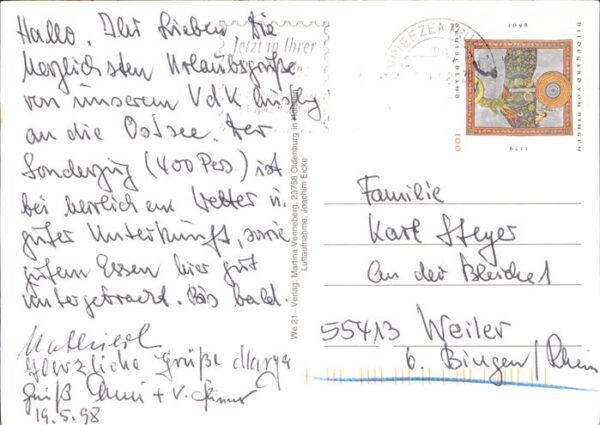 Hallo, Ihr Lieben, die
herzlichsten Urlaubsgrüße
von unserem VdK Ausflug
an die Ostsee. Der
Sonderzug (400 Pers.) ist
bei herrlichem Wetter u.
guter Unterkunft, sowie
gutem Essen hier gut
untergebracht. Bis bald.
Herzliche Grüße
Gruß
19.5.98
Jetzt in Ihrer
We 21 - Verlag: Martina Venneberg, 23758 Oldenburg in
Luftaufnahme: Joachim Eicke
BRIEFZENTRUM
1098
HILDEGARD VON BINGEN
DEUTSCHLAND
100
1179
Familie
Karl Steyer
An der Bleiche 1
55413 Weiler
b. Bingen/Rhein